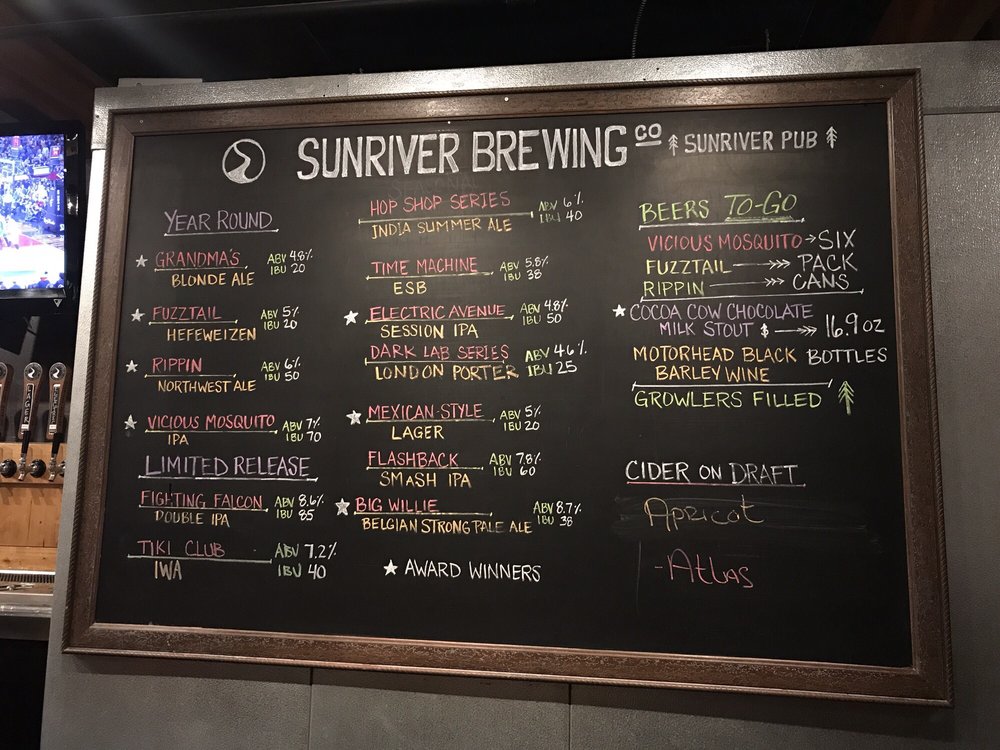 SUNRIVER BREWING CO SUNRIVER PUB
YEAR ROUND
GRANDMA'S ABV 4.8%
BLONDE ALE IBU 20
FUZZTAIL ABV 5%
HEFEWEIZEN IBU 20
RIPPIN ABV 6%
NORTHWEST ALE IBU 50
VICIOUS MOSQUITO ABV 7%
IPA IBU 70
LIMITED RELEASE
FIGHTING FALCON ABV 8.6%
DOUBLE IPA IBU 85
TIKI CLUB ABV 7.2%
IWA IBU 40
HOP SHOP SERIES ABV 6%
INDIA SUMMER ALE IBU 40
TIME MACHINE ABV 5.8%
ESB IBU 38
ELECTRIC AVENUE ABV 4.8%
SESSION IPA IBU 50
DARK LAB SERIES ABV 4.6%
LONDON PORTER IBU 25
MEXICAN-STYLE ABV 5%
LAGER IBU 20
FLASHBACK ABV 7.8%
SMASH IPA IBU 60
BIG WILLIE ABV 8.7%
BELGIAN STRONG PALE ALE IBU 38
AWARD WINNERS
BEERS TO-GO
VICIOUS MOSQUITO → SIX
FUZZTAIL PACK
RIPPIN CANS
COCOA COW CHOCOLATE
MILK STOUT $ 16.9 OZ
MOTORHEAD BLACK BOTTLES
BARLEY WINE
GROWLERS FILLED
CIDER ON DRAFT
Apricot
-Atlas
LAGER